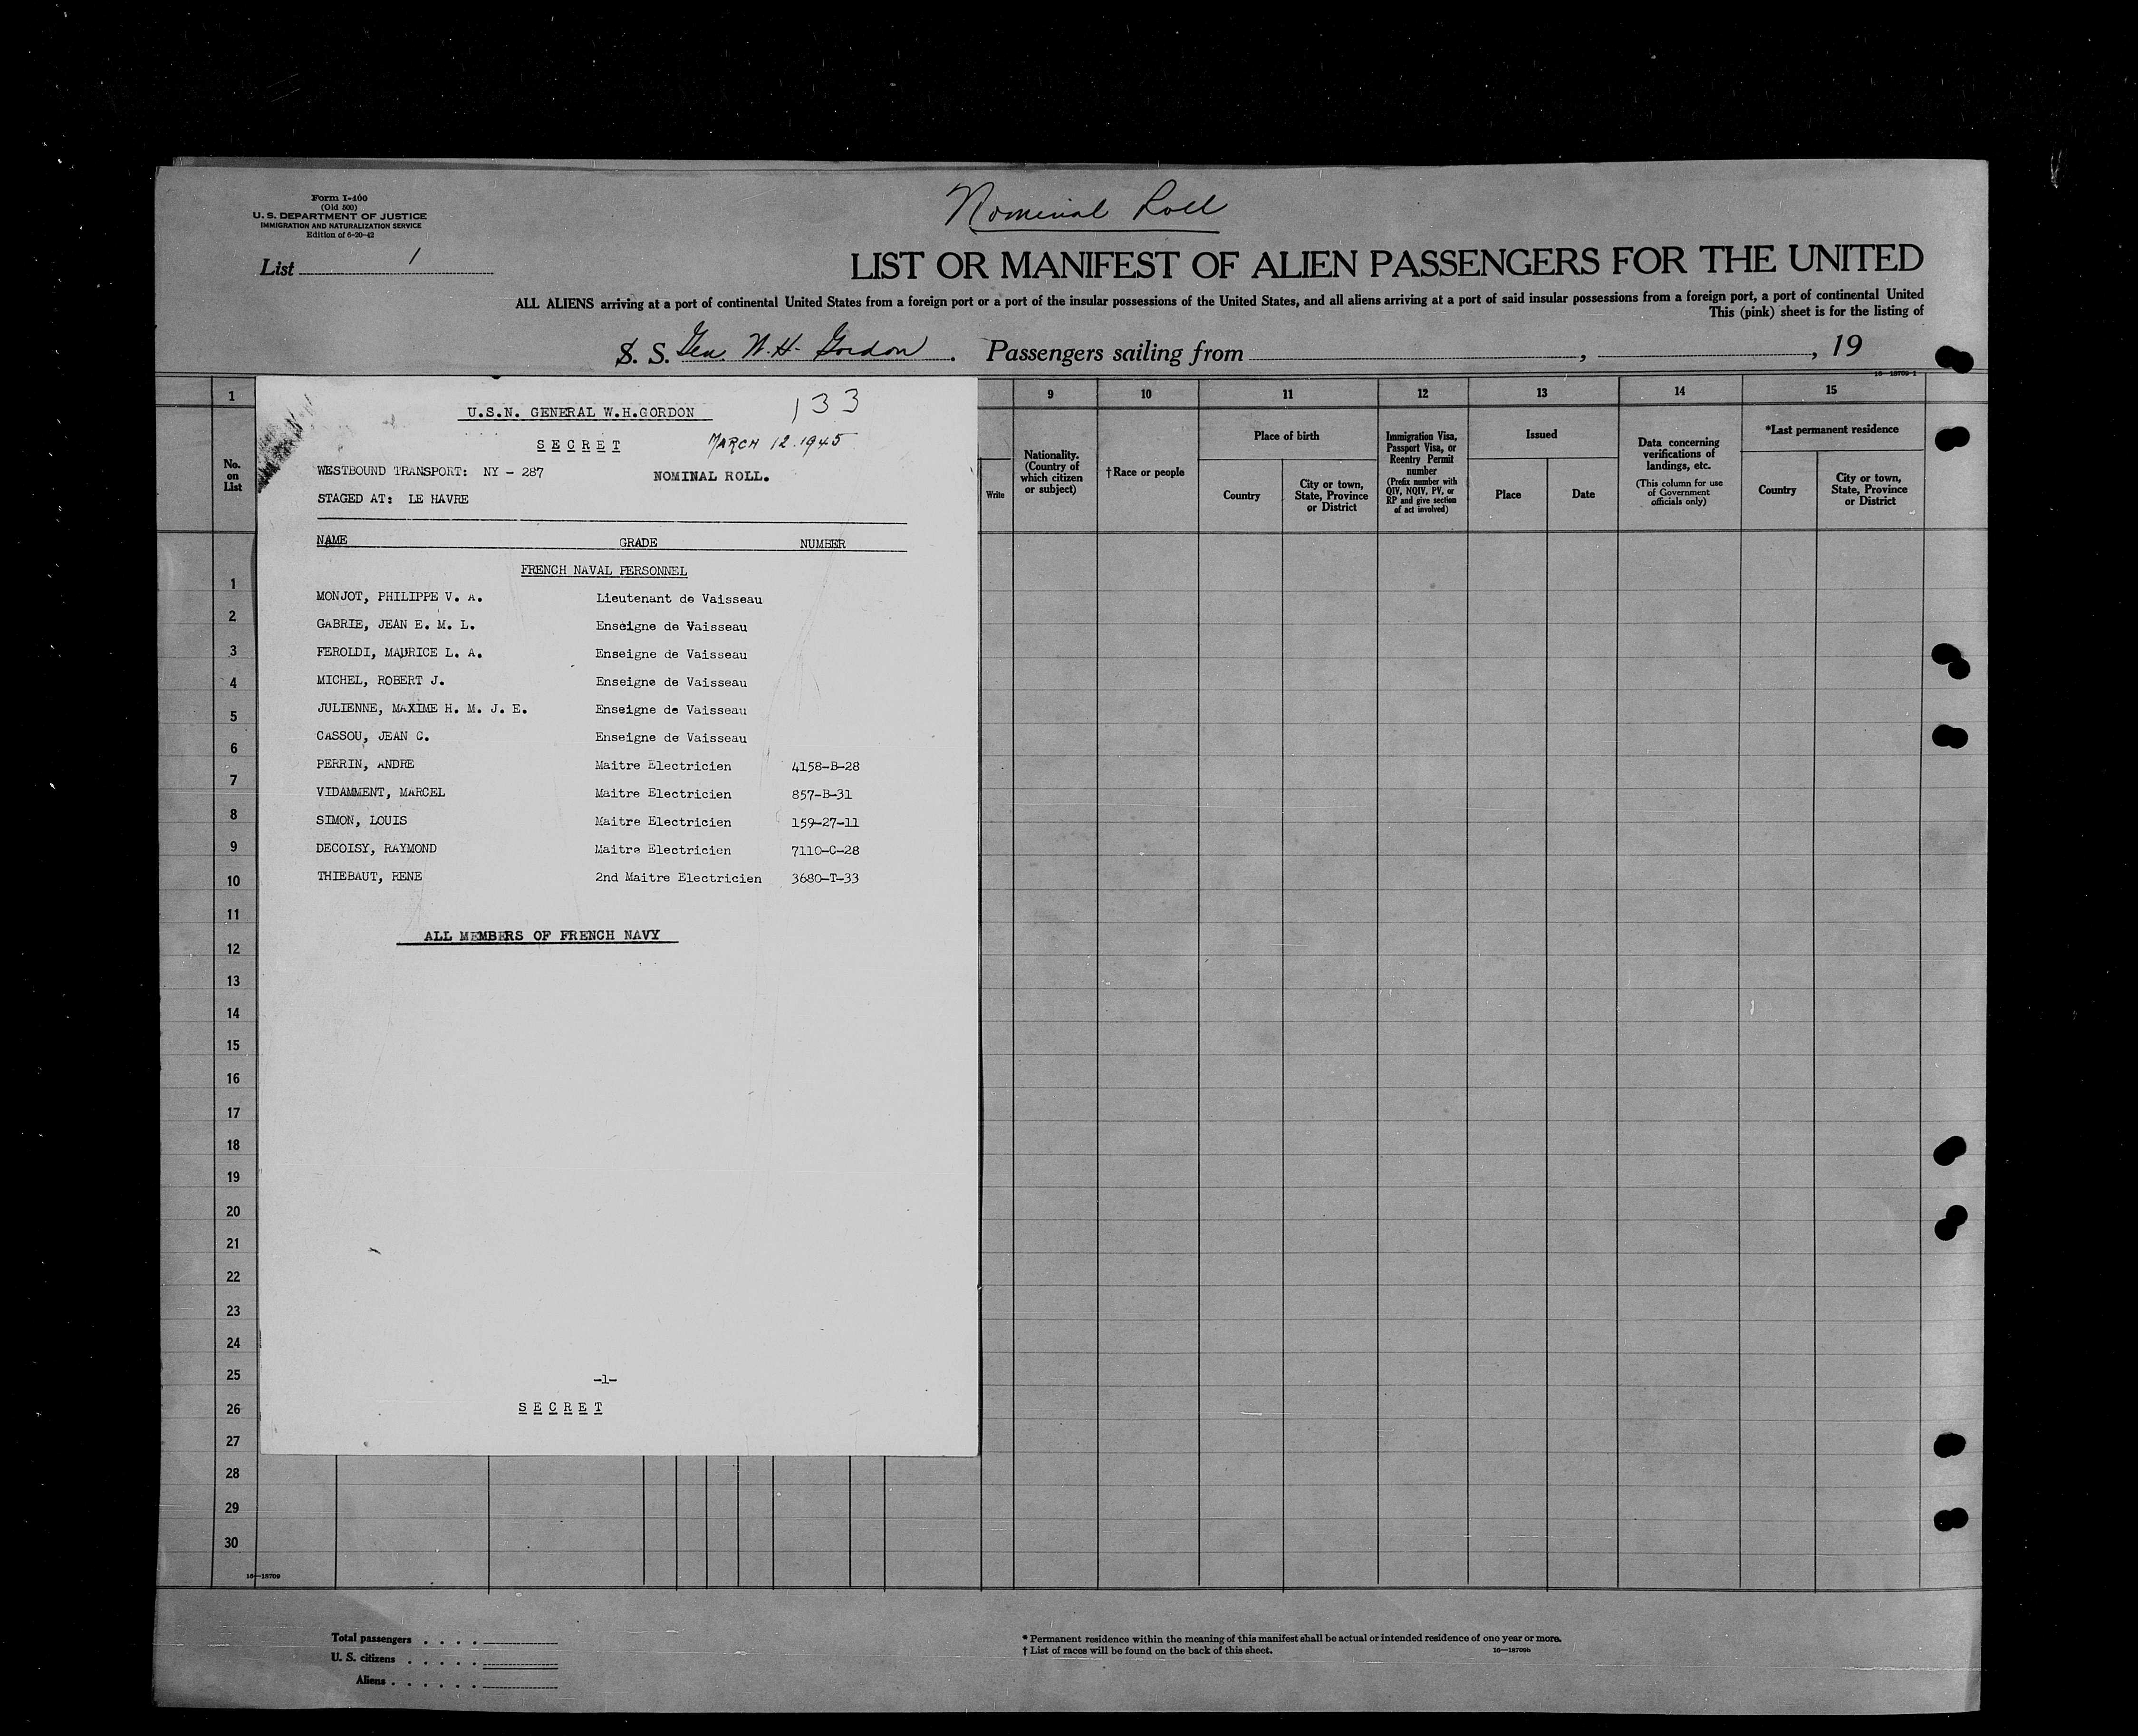 Form I-400
(Old 500)
U. S. DEPARTMENT OF JUSTICE
IMMIGRATION AND NATURALIZATION SERVICE
Edition of 6-20-42
Nominal Roll
List 1
LIST OR MANIFEST OF ALIEN PASSENGERS FOR THE UNITED
ALL ALIENS arriving at a port of continental United States from a foreign port or a port of the insular possessions of the United States, and all aliens arriving at a port of said insular possessions from a foreign port, a port of continental United
This (pink) sheet is for the listing of
S. S. Gen W. H. Gordon. Passengers sailing from , , 19
16—18709-1
1 9 10 11 12 13 14 15
No. on List
Write
Nationality. (Country of which citizen or subject)
†Race or people
Place of birth
Country
City or town, State, Province or District
Immigration Visa, Passport Visa, or Reentry Permit number
(Prefix number with QIV, NQIV, PV, or RP and give section of act involved)
Issued
Place
Date
Data concerning verifications of landings, etc.
(This column for use of Government officials only)
*Last permanent residence
Country
City or town, State, Province or District
U.S.N. GENERAL W.H.GORDON 133
SECRET MARCH 12.1945
WESTBOUND TRANSPORT: NY - 287 NOMINAL ROLL.
STAGED AT: LE HAVRE
NAME GRADE NUMBER
FRENCH NAVAL PERSONNEL
MONJOT, PHILIPPE V. A. Lieutenant de Vaisseau
GABRIE, JEAN E. M. L. Enseigne de Vaisseau
FEROLDI, MAURICE L. A. Enseigne de Vaisseau
MICHEL, ROBERT J. Enseigne de Vaisseau
JULIENNE, MAXIME H. M. J. E. Enseigne de Vaisseau
CASSOU, JEAN C. Enseigne de Vaisseau
PERRIN, ANDRE Maitre Electricien 4158-B-28
VIDAMMENT, MARCEL Maitre Electricien 857-B-31
SIMON, LOUIS Maitre Electricien 159-27-11
DECOISY, RAYMOND Maitre Electricien 7110-C-28
THIEBAUT, RENE 2nd Maitre Electricien 3680-T-33
ALL MEMBERS OF FRENCH NAVY
-1-
SECRET
1
2
3
4
5
6
7
8
9
10
11
12
13
14
15
16
17
18
19
20
21
22
23
24
25
26
27
28
29
30
16—18709
Total passengers
U. S. citizens
Aliens
* Permanent residence within the meaning of this manifest shall be actual or intended residence of one year or more.
† List of races will be found on the back of this sheet. 16—18709b